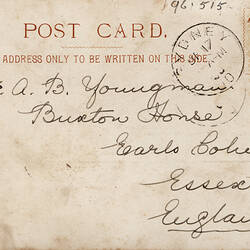 196·515·
POST CARD.
ADDRESS ONLY TO BE WRITTEN ON THIS SIDE.
DNEY
17
A. B. Youngman
Buxton House
Earls Colne
Essex
Engla